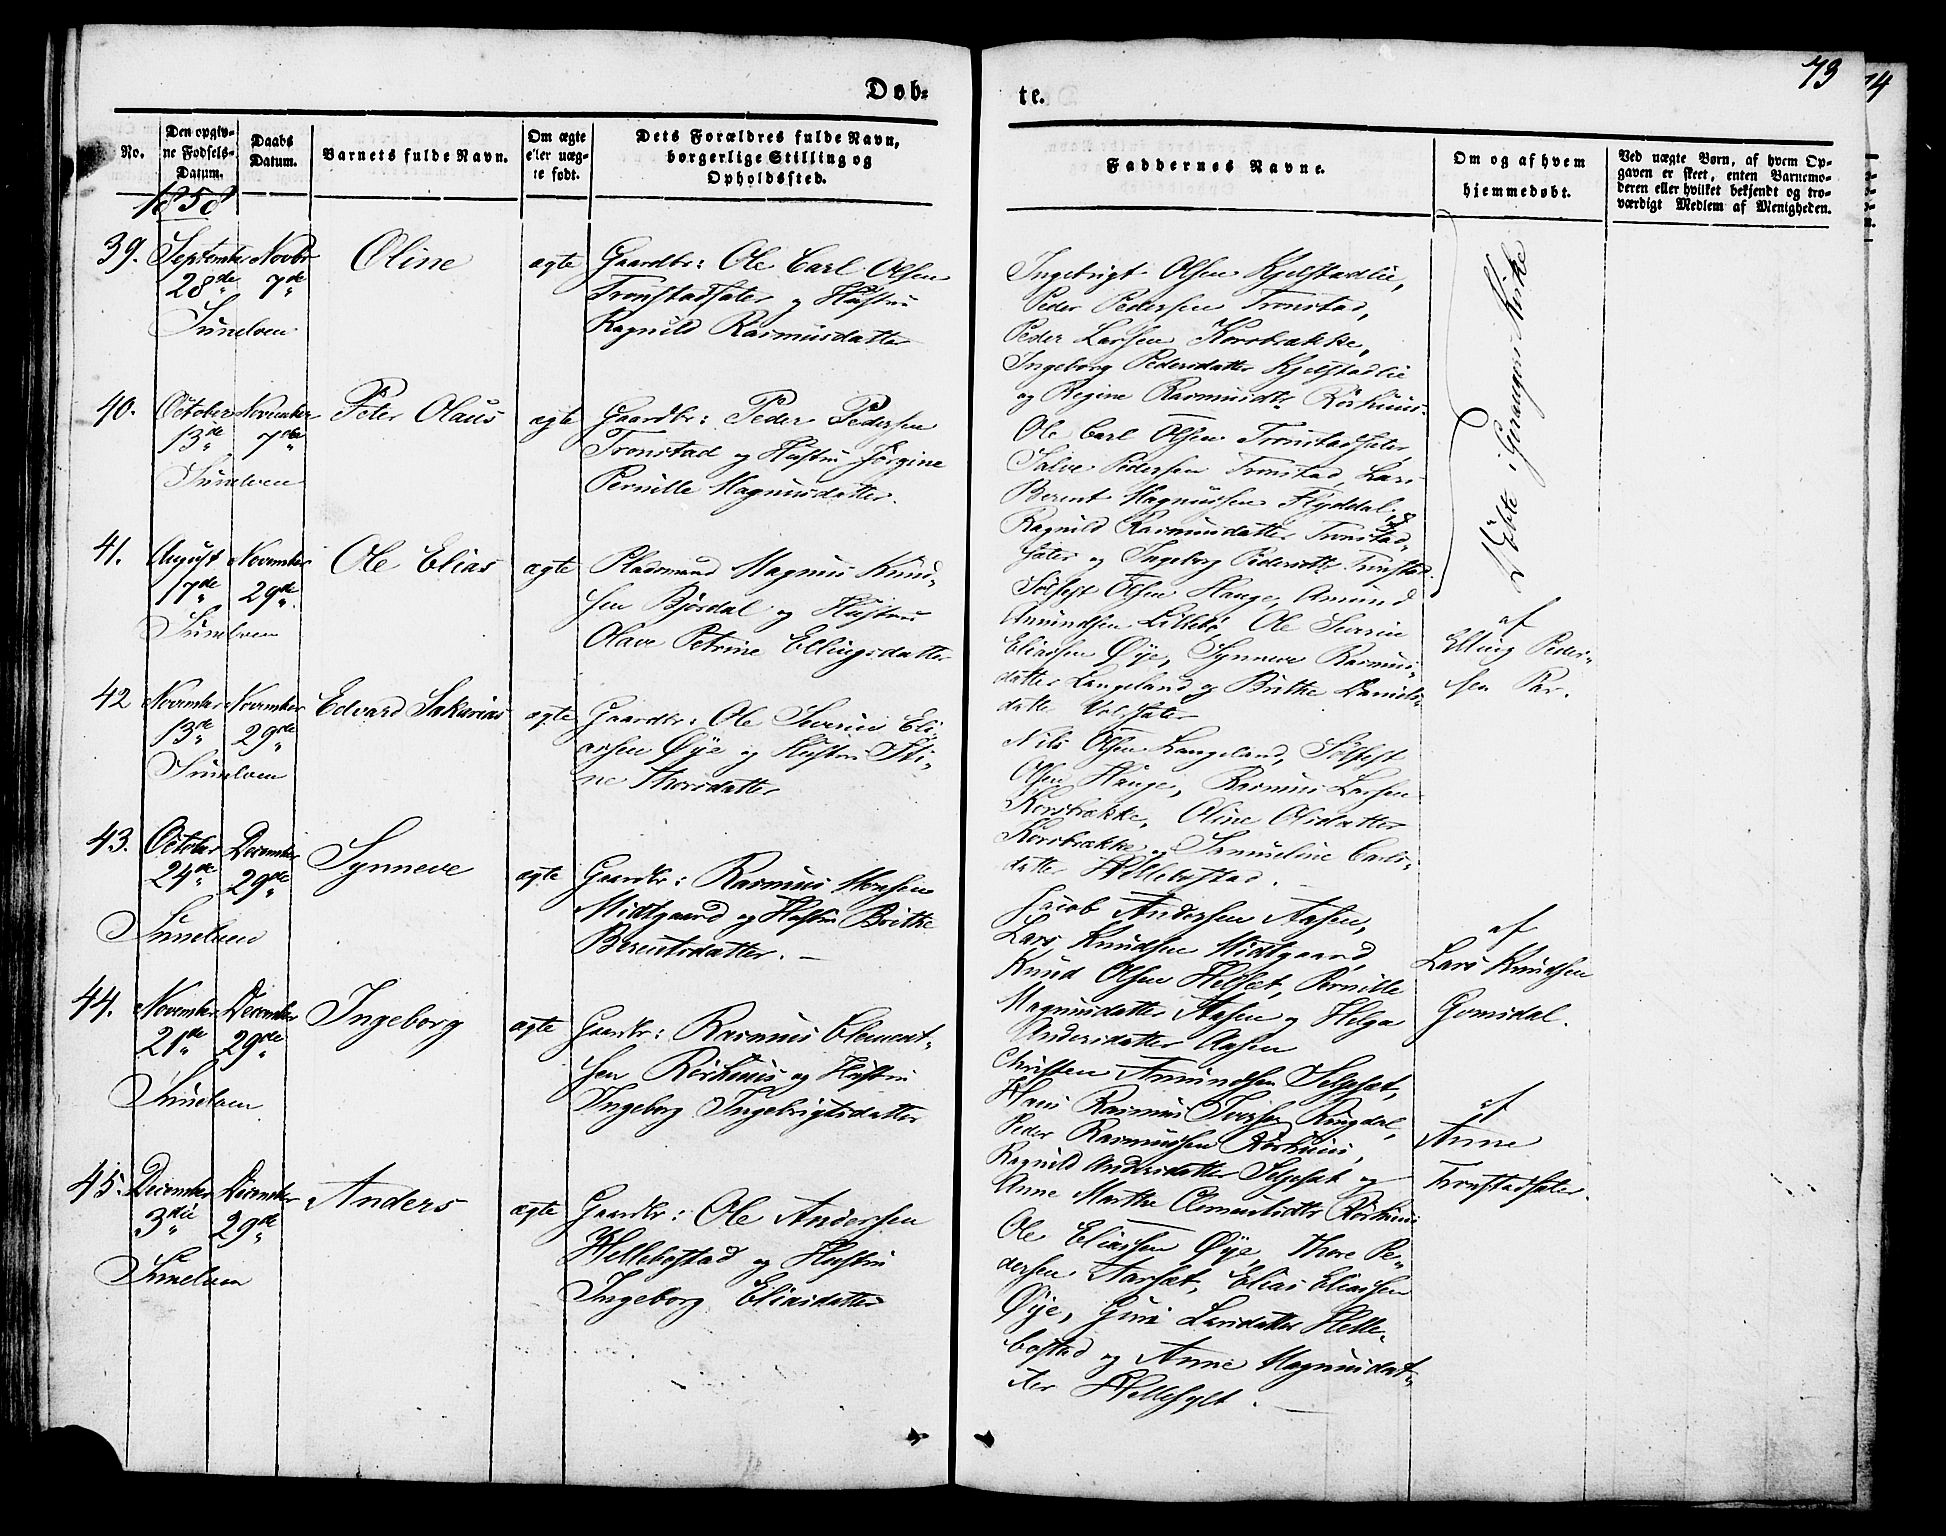 Døb-
te.
73
74
No.
Den opgiv-
ne Fødsels-
Datum.
Daabs
Datum.
Barnets fulde Navn.
Om ægte
eller uæg-
te født.
Dets Forældres fulde Navn,
borgerlige Stilling og
Opholdssted.
Faddernes Navne.
Om og af hvem
hjemmedøbt.
Ved uægte Børn, af hvem Op-
gaven er skeet, enten Barnemo-
deren eller hvilket bekjendt og tro-
værdigt Medlem af Menigheden.
1858
39. September Novbr Oline ægte Gaardbr: Ole Carl Olsen
28de 7de Tronstadsæter og Hustru
Sunelven Ragnild Rasmusdatter
Ingebrigt Olsen Kjelstadlie,
Peder Pedersen Tronstad,
Peder Larsen Korsbrække,
Ingeborg Pedersdatter Kjelstadlie
og Regine Rasmusdtr Rørhuus
40. October November Peter Olaus ægte Gaardbr: Peder Pedersen
13de 7de Tronstad og Hustru Jørgine
Sunelven Pernille Magnusdatter.
Ole Carl Olsen Tronstadsæter,
Salve Pedersen Tronstad, Lars
Berent Magnussen Flyddal,
Ragnild Rasmusdatter Tronstad-
sæter og Ingeborg Pedersdtr Tronstad.
Døbte i Geranger Kirke
41. August November Ole Elias ægte Pladsmand Magnus Knud-
17de 29de sen Bjørdal og Hustru
Sunelven Olave Petrine Ellingsdatter
Sølfest Olsen Hauge, Amund
Amundsen Lillebø, Ole Severin
Eliassen Øye, Synneve Rasmus-
datter Langeland og Brithe Daniels-
datter
af
Elling Peder-
sen
42 November November Edvard Sakarias ægte Gaardbr: Ole Severin Eli-
13de 29de assen Øye og Hustru Sti-
Sunelven ne Thorsdatter
Nils Olsen Langeland, Sølfest
Olsen Hauge, Rasmus Larsen
Korsbrække, Oline Olsdatter
Korsbrække og Samueline Carls-
datter Hellebostad.
43. October December Synneve ægte Gaardbr: Rasmus Monsen
24de 29de Midtgaard og Hustru Brithe
Sunelven Berentsdatter.
Jacob Andersen Aasen,
Lars Knudsen Midtgaard,
Knud Olsen Helset, Pernille
Magnusdatter Aasen og Helga
Andersdatter Aasen
af
Lars Knudsen
Gomsdal.
44. November December Ingeborg ægte Gaardbr: Rasmus Clement-
21de 29de sen Rørhuus og Hustru
Sunelven Ingeborg Ingebrigtsdatter
Christen Amundsen Selgesæt,
Hans Rasmus Iversen Ringdal,
Peder Rasmussen Rørhuus,
Ragnild Andersdatter Selgesæt og
Anne Marthe Clementsdtr Rørhuus
af
Anne
Tronstadsæter.
45. December December Anders ægte Gaardbr: Ole Andersen
3die 29de Hellebostad og Hustru
Sunelven Ingeborg Eliasdatter
Ole Eliassen Øye, Thore Pe-
dersen Aarsæt, Elias Eliassen
Øye, Guri Larsdatter Helle-
bostad og Anne Magnusdat-
ter Hellesylt.